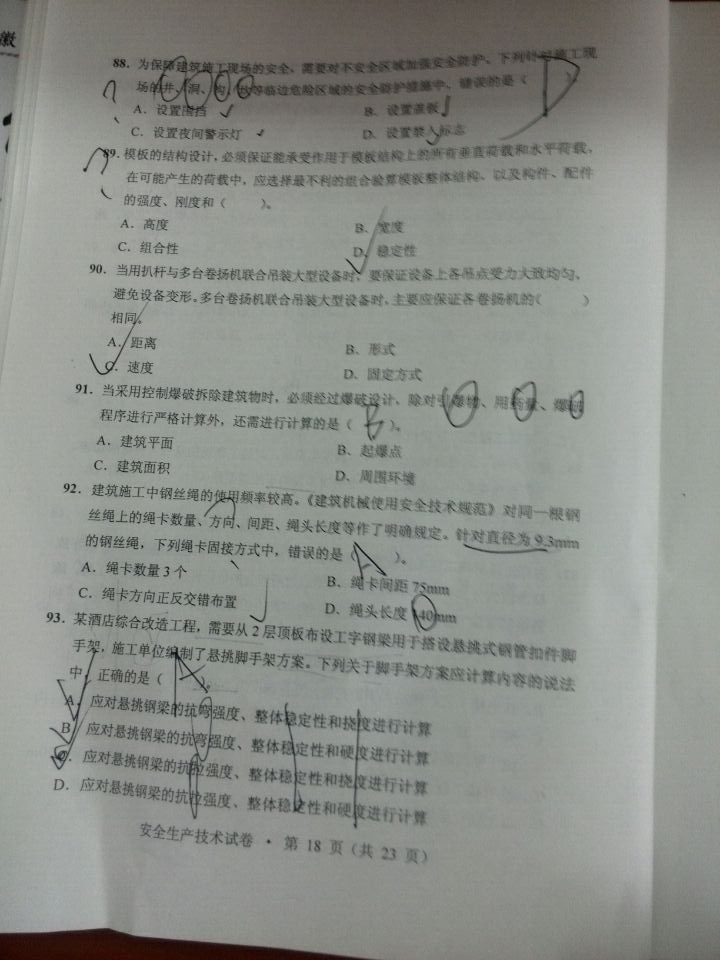 徽
88. 为保障建筑施工现场的安全，需要对不安全区域加强安全防护。下列针对施工现
场的井、洞、沟、坎等临边危险区域的安全防护措施中，错误的是（ D ）。
A. 设置围挡 B. 设置盖板
C. 设置夜间警示灯 D. 设置禁入标志
89. 模板的结构设计，必须保证能承受作用于模板结构上的所有垂直荷载和水平荷载，
在可能产生的荷载中，应选择最不利的组合验算模板整体结构、以及构件、配件
的强度、刚度和（ ）。
A. 高度 B. 宽度
C. 组合性 D. 稳定性
90. 当用扒杆与多台卷扬机联合吊装大型设备时，要保证设备上各吊点受力大致均匀，
避免设备变形。多台卷扬机联合吊装大型设备时，主要应保证各卷扬机的（ ）
相同。
A. 距离 B. 形式
C. 速度 D. 固定方式
91. 当采用控制爆破拆除建筑物时，必须经过爆破设计，除对引爆物、用药量、爆破
程序进行严格计算外，还需进行计算的是（ B ）。
A. 建筑平面 B. 起爆点
C. 建筑面积 D. 周围环境
92. 建筑施工中钢丝绳的使用频率较高。《建筑机械使用安全技术规范》对同一根钢
丝绳上的绳卡数量、方向、间距、绳头长度等作了明确规定。针对直径为 9.3mm
的钢丝绳，下列绳卡固接方式中，错误的是（ A ）。
A. 绳卡数量 3 个 B. 绳卡间距 75mm
C. 绳卡方向正反交错布置 D. 绳头长度 140mm
93. 某酒店综合改造工程，需要从 2 层顶板布设工字钢梁用于搭设悬挑式钢管扣件脚
手架，施工单位编制了悬挑脚手架方案。下列关于脚手架方案应计算内容的说法
中，正确的是（ A ）。
A. 应对悬挑钢梁的抗弯强度、整体稳定性和挠度进行计算
B. 应对悬挑钢梁的抗弯强度、整体稳定性和硬度进行计算
C. 应对悬挑钢梁的抗拉强度、整体稳定性和挠度进行计算
D. 应对悬挑钢梁的抗拉强度、整体稳定性和硬度进行计算
安全生产技术试卷 · 第 18 页（共 23 页）